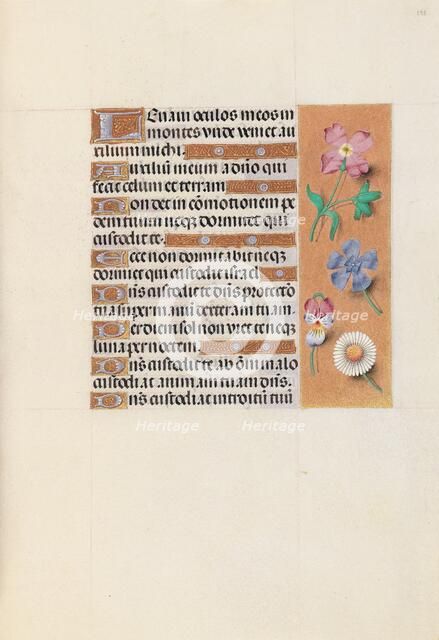 Leuaui oculos meos in
montes vnde veniet au
xilium michi.
Auxilium meum a dño qui
fecit celum et terram
Non det in cōmotionem pe
dem tuum neqꝫ dormitet qui
custodit te.
Ecce non dormitabit neqꝫ
dormiet qui custodit israel
Dñs custodit te dñs protectio
tua
Per diem sol non vret te neqꝫ
luna per noctem
Dñs custodit te ab om̄i malo
custodiat animam tuam dñs.
Dñs custodiat introitū tuū
Heritage Heritage Heritage
Heritage Heritage Heritage